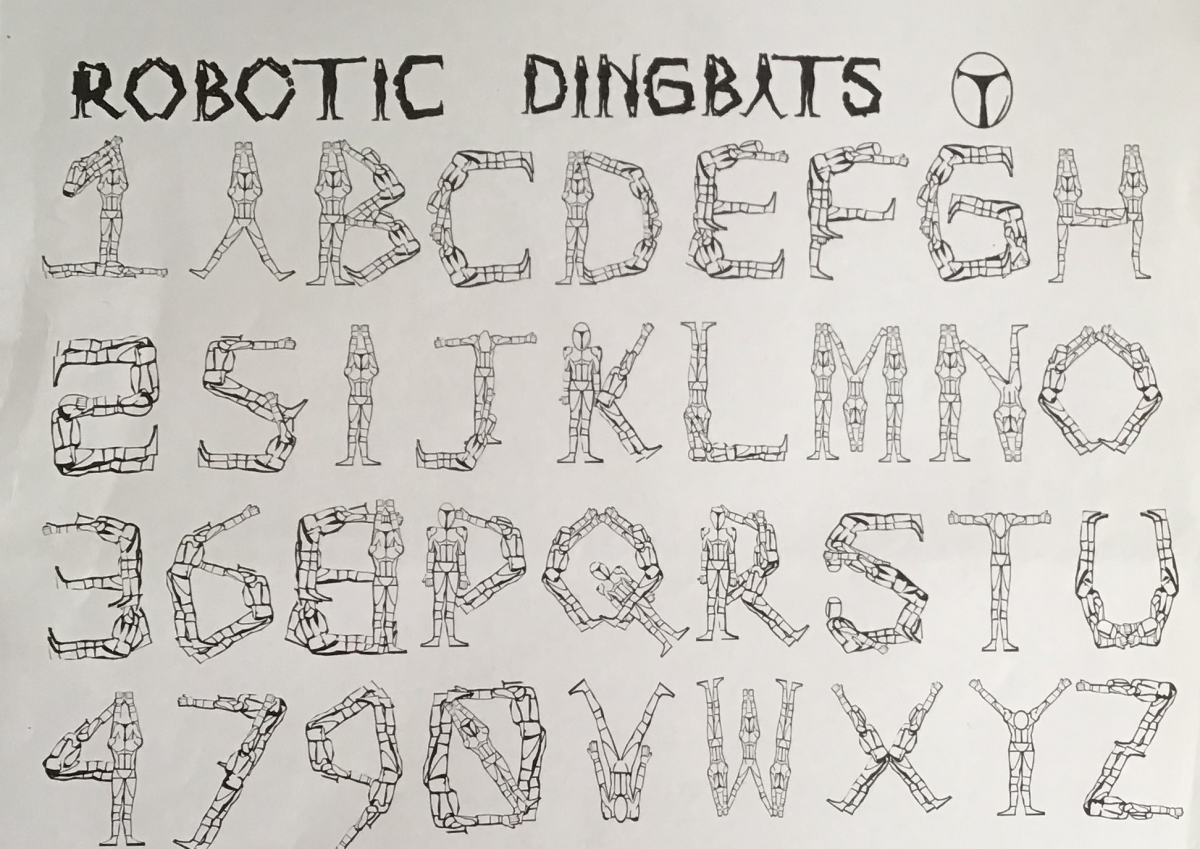 ROBOTIC DINGBATS
1 A B C D E F G H
2 5 I J K L M N O
3 6 8 P Q R S T U
4 7 9 0 V W X Y Z